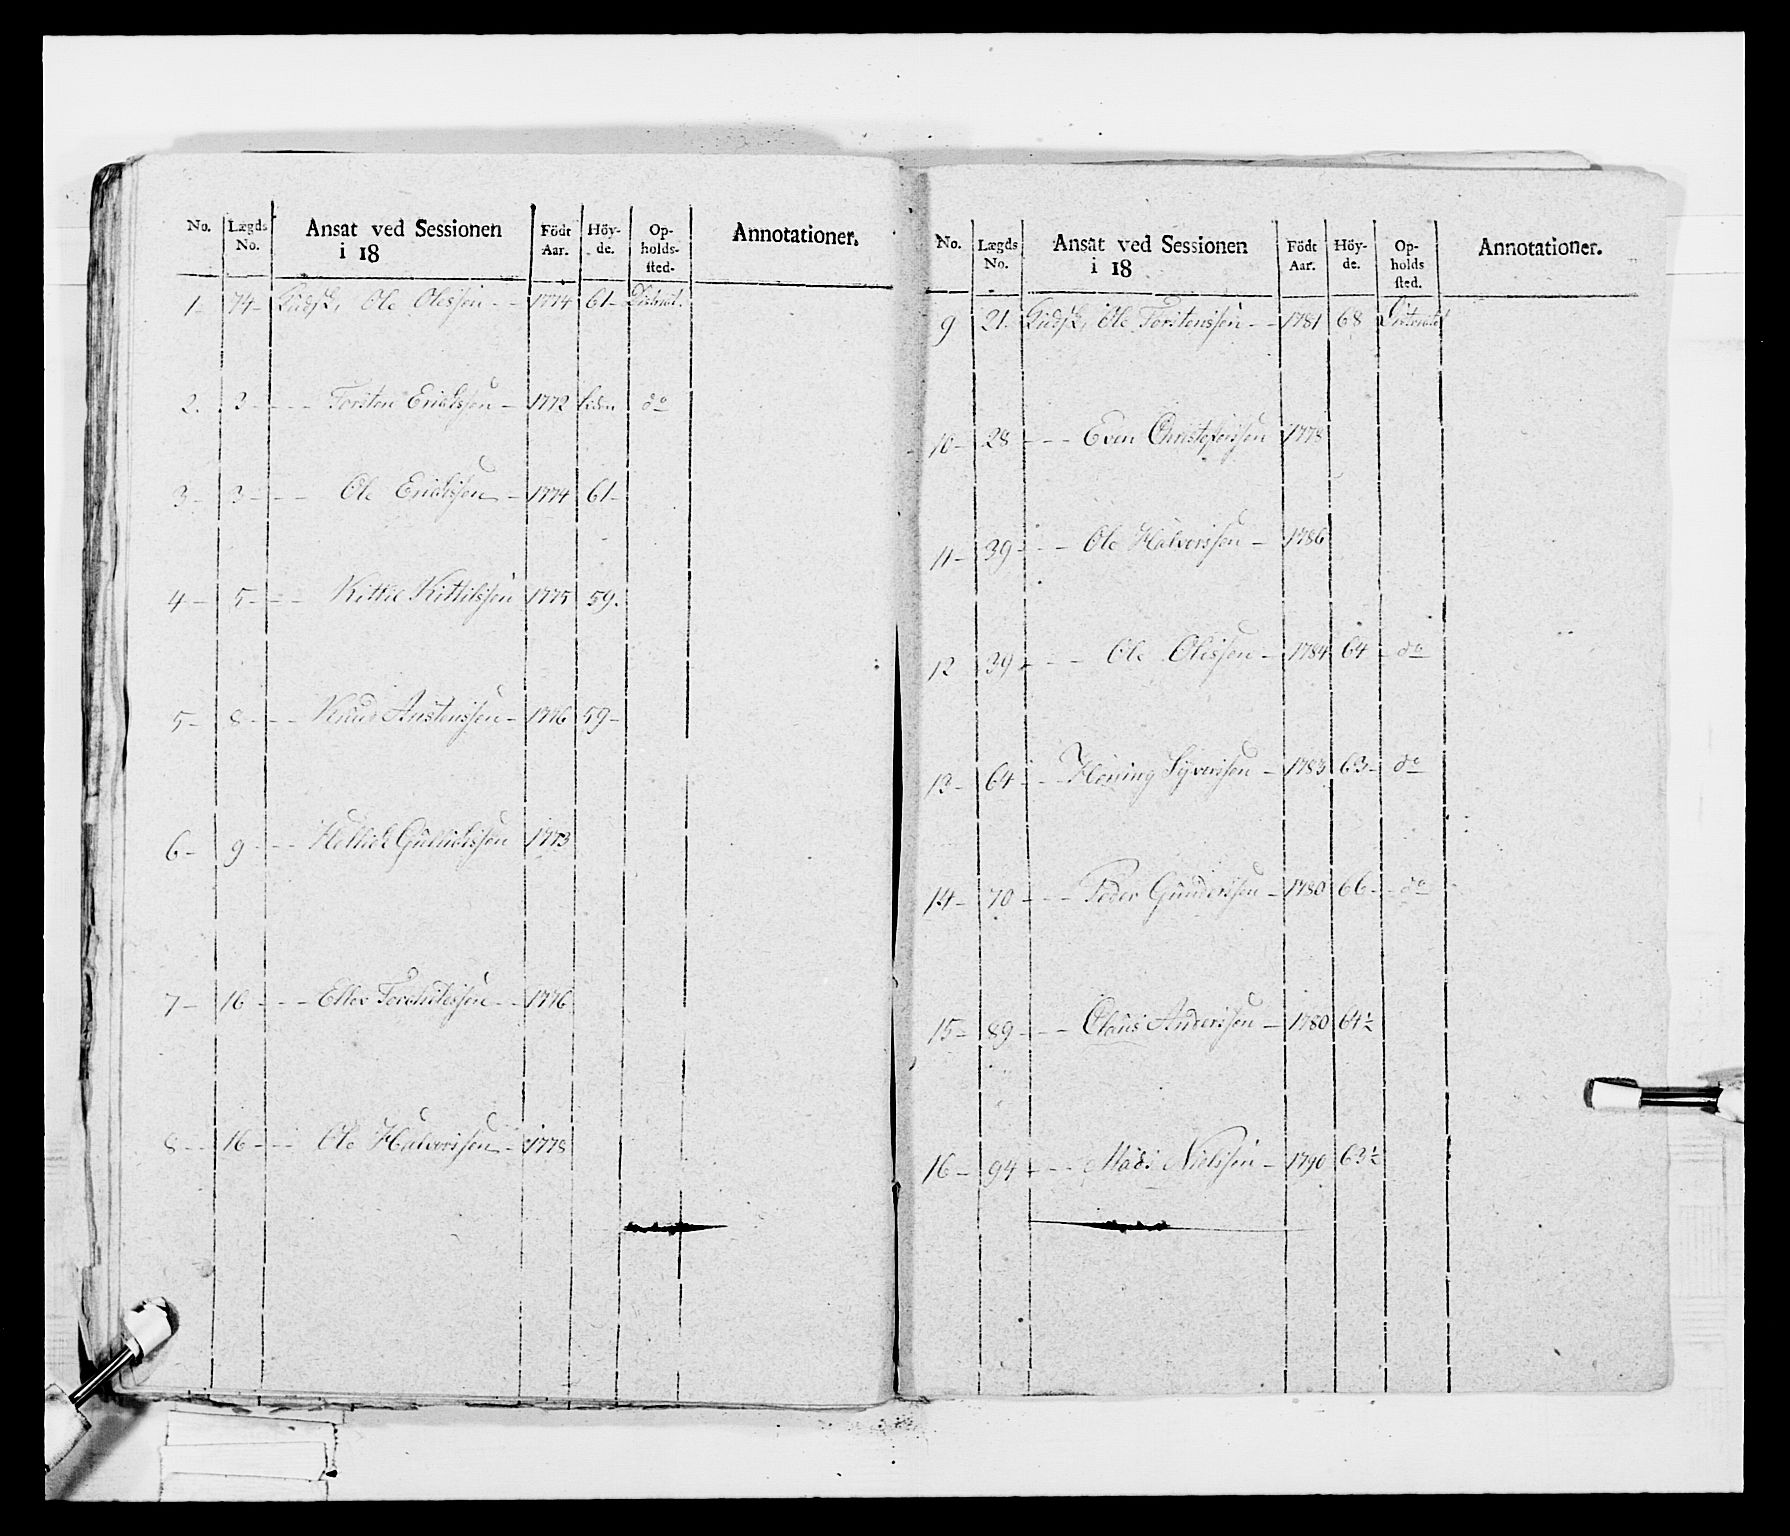 No. Lægds No. Ansat ved Sessionen i 18 Födt Aar. Höy-de. Op-holds-sted. Annotationer.
1 – 74 – Ole Olessen – – 1774 61 –
2. 3 – – – Torsten Erichssen – 1772 do
3 – 3 – – – Ole Erichssen – 1774 61 –
4 – 5 – – – Kittil Kittilssen 1775 59.
5 – 8 – – – Knud Anstenssen – 1776 59 –
6 – 9 – – – Gullichssen 1773
7 – 16 – – – 1776
8 – – 16 – – – Ole Halvorssen – 1778
No. Lægds No. Ansat ved Sessionen i 18 Födt Aar. Höy-de. Op-holds sted. Annotationer.
9 21. Ole Torstenssen – – 1781 68
10 – 28 – – – Even Christofersen 1778
11 – 39 – – – Ole Halvorssen – 1786
12 39 – – – Ole Olessen – 1784 64 – do
13 – 64 – – Syverssen – 1783 63 – do
14 – 70 – – – Peder Gunderssen – 1780 66 – do
15 – 89 – – – Claus Anderssen – 1780 64½
16 – 94 – – – Mads Nielssen – 1790 63½